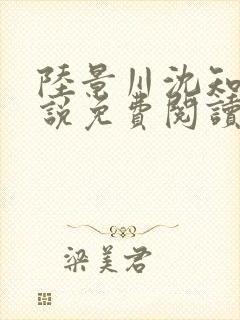 陸景川沈知
說免費閱讀
梁美君